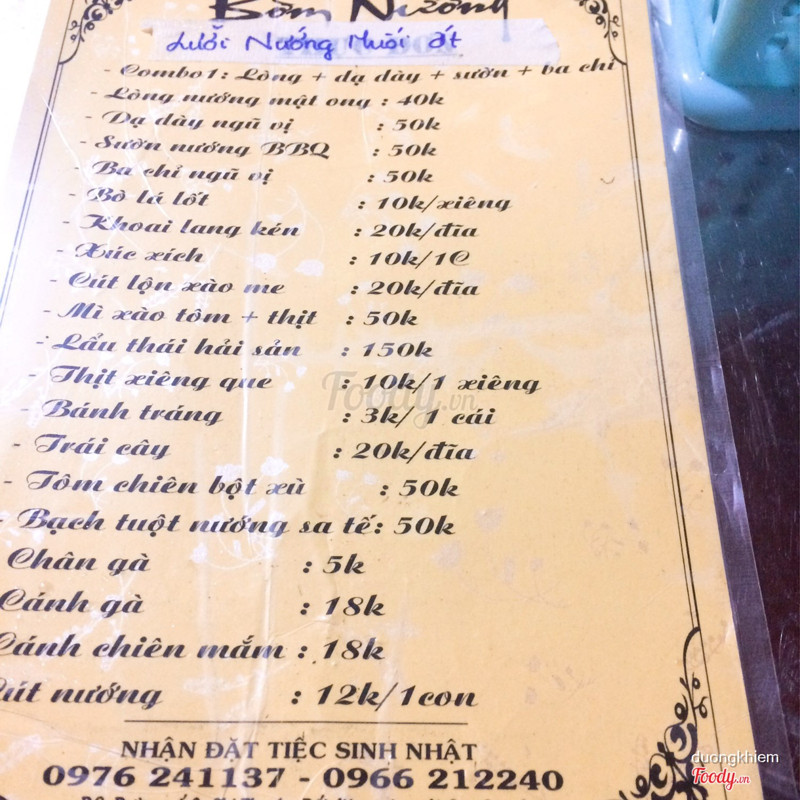 Bờm Nướng
Lưỡi Nướng Muối ớt
- Combo1: Lòng + dạ dày + sườn + ba chỉ
- Lòng nướng mật ong : 40k
- Dạ dày ngũ vị : 50k
- Sườn nướng BBQ : 50k
- Ba chỉ ngũ vị : 50k
- Bò lá lốt : 10k/xiêng
- Khoai lang kén : 20k/đĩa
- Xúc xích : 10k/1C
- Cút lộn xào me : 20k/đĩa
- Mì xào tôm + thịt : 50k
- Lẩu thái hải sản : 150k
- Thịt xiêng que : 10k/1 xiêng
- Bánh tráng : 3k/1 cái
- Trái cây : 20k/đĩa
- Tôm chiên bột xù : 50k
- Bạch tuột nướng sa tế: 50k
Chân gà : 5k
Cánh gà : 18k
Cánh chiên mắm : 18k
Cút nướng : 12k/1con
NHẬN ĐẶT TIỆC SINH NHẬT
0976 241137 - 0966 212240
Foody.vn
duongkhiem
Foody.vn